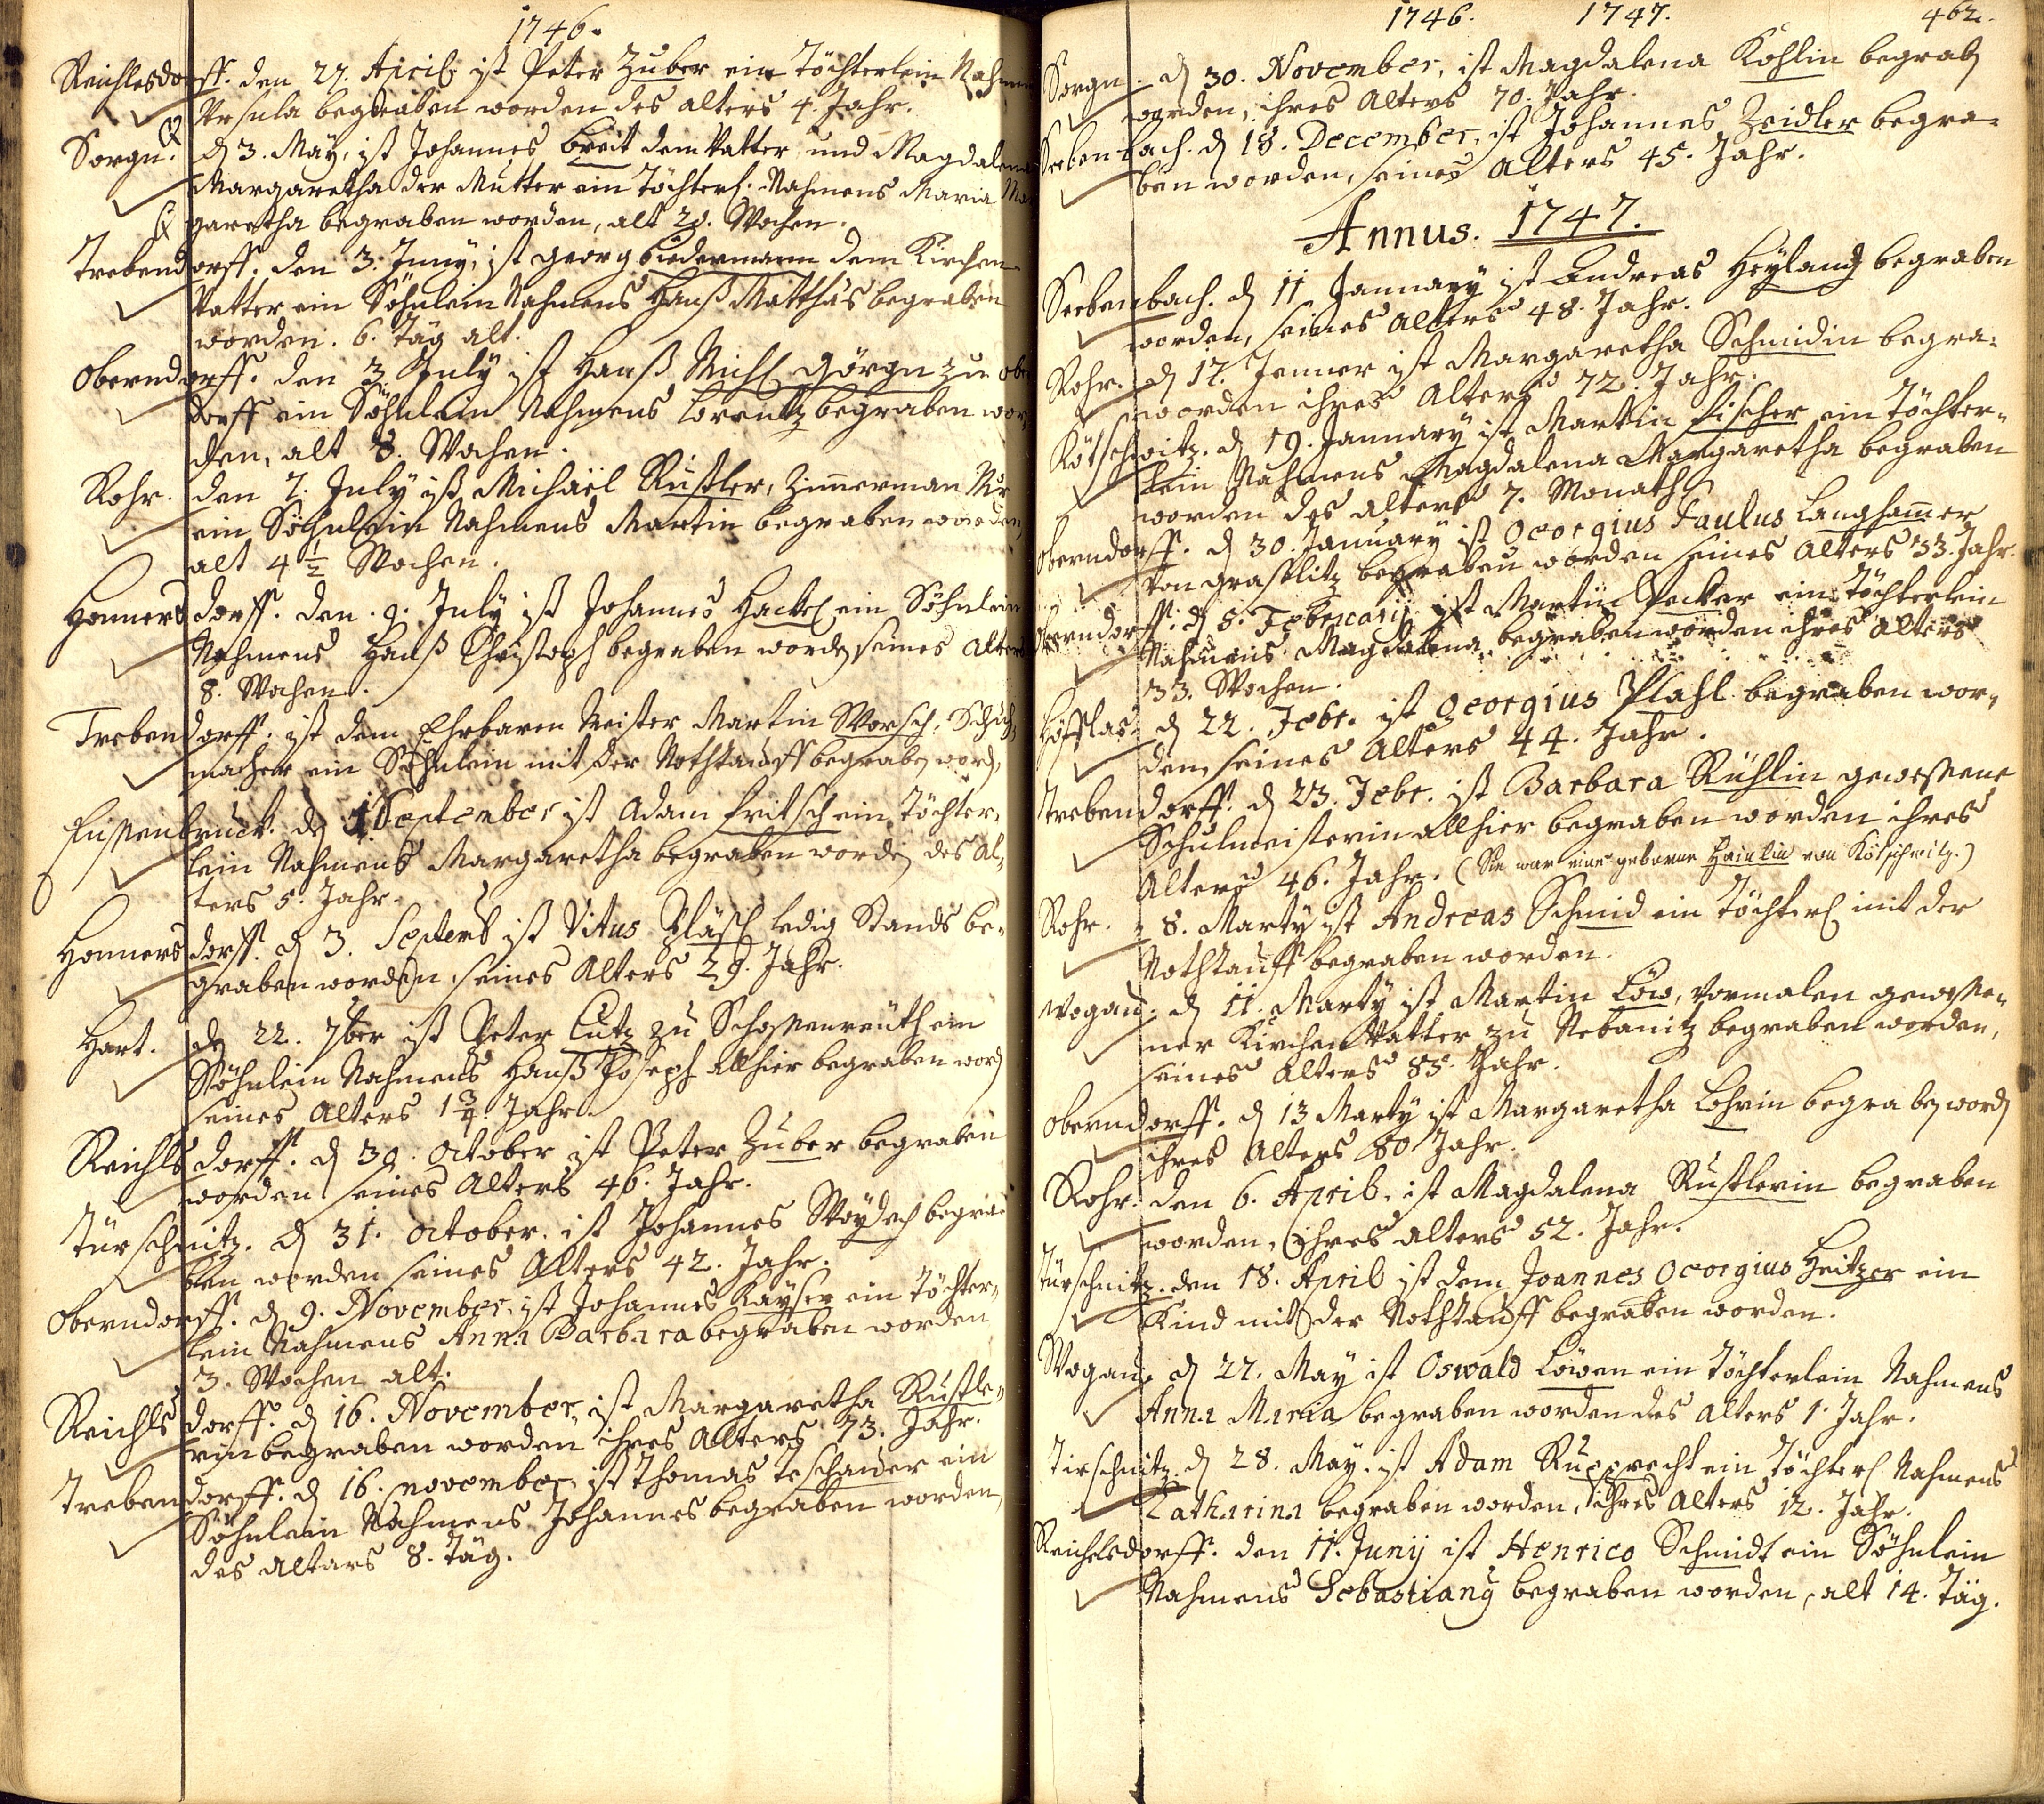 1746.
Reichlesdorff. den 27. April ist Peter Zuber ein Töchterlein Nahmens
Ursula begraben worden des alters 4. Jahr.
Sorgn. d 3. May, ist Johannes Creit dem Vatter und Magdalena
Margaretha der Mutter ein Töchterl. Nahmens Maria Mar
garetha begraben worden, alt 20. Wochen.
Trebendorff. den 3. Juny, ist georg biedermann dem Kirchen
Vatter ein Söhnlein Nahmens Hanß Matthäs begraben
worden. 6. Täg alt.
Oberndorff. den 3 July ist Hanß Michl Görgn zu obern
dorff ein Söhnlein Nahmens Lorentz begraben wor
den, alt 8. Wochen.
Rohr. den 7. July ist Michaël Rustler, Zimmerman
ein Söhnlein Nahmens Martin begraben worden,
alt 4 1/2 Wochen.
Honnersdorff. den 9. July ist Johannes Hackl ein Söhnlein
Nahmens Hanß Christoph begraben worden seines alters
8. Wochen.
Trebendorff. ist dem Ehrbaren Meister Martin Worsch, Schuch
macher ein Söhnlein mit der Nothtauff begraben word.
Eussenbruck. den 1 September ist Adam fritsch ein Töchter
lein Nahmens Margaretha begraben worden des al
ters 5. Jahr.
Honnersdorff. d 3. Septemb ist Vitus Bläsl ledig Stands be
graben worden seines Alters 29. Jahr.
Hart. den 22. 7ber ist Peter Lutz zu Schossenreuth ein
Söhnlein Nahmens Hanß Joseph allhier begraben word
seines Alters 1 3/4 Jahr.
Reichlsdorff. d 30. October ist Peter Zuber begraben
worden seines Alters 46. Jahr.
Türschnitz. d 31. October. ist Johannes Woydech begra
ben worden seines Alters 42. Jahr.
Oberndorff. d 9. November, ist Johannes Kayser ein Töchter
lein Nahmens Anna Barbara begraben worden
3. Wochen alt.
Reichlsdorff. d 16. November, ist Margaretha Rustle
rin begraben worden ihres Alters 73. Jahr.
Trebendorff. d 16. november, ist Thomas teschauer ein
Söhnlein Nahmens Johannes begraben worden,
des alters 8. Täg.
1746. 1747. 462.
Sorgn. d 30. November, ist Magdalena Köhlin begrab
worden, ihres Alters 70. Jahr.
Seebenbach. d 18. December, ist Johannes Zeidler begra
ben worden, seines Alters 45. Jahr.
Annus. 1747.
Seebenbach. d 11 January ist Andreas Heyland begraben
worden, seines Alters 48. Jahr.
Rohr. d 17. Jenner ist Margaretha Schmidin begra
worden ihres Alters 72. Jahr.
Kötschwitz. d 19. January ist Martin fischer ein Töchter
lein Nahmens Magdalena Margaretha begraben
worden des alters 7. Monath
Oberndorff. d 30. January ist Georgius Paulus Langhammer
von graslitz begraben worden seines Alters 33. Jahr.
Oberndorff. d 8. Februarij ist Martin Pecker ein Töchterlein
Nahmens Magdalena begraben worden ihres alters
33. Wochen.
Höfflas. d 22. Febr. ist Georgius Plahl begraben wor
den, seines Alters 44. Jahr.
Trebendorff. d 23. Febr. ist Barbara Rühlin gewesene
Schulmeisterin allhier begraben worden ihres
Alters 46. Jahr. (Sie war eine geborne Hainlin von Kötschwitz.)
Rohr. 8. Marty ist Andreas Schmid ein Töchterl mit der
Nothtauff begraben worden.
Wogau. d 11. Marty ist Martin Löw, vormalen gewese
ner Kirchen Vatter zu Nebanitz begraben worden,
seines Alters 85. Jahr.
Oberndorff. d 13 Marty ist Margaretha Lohrin begraben word
ihres Alters 80 Jahr.
Rohr. den 6. April. ist Magdalena Rustlerin begraben
worden, ihres alters 52. Jahr.
Türschnitz. den 18. April ist dem Joannes Georgius Heitzer ein
Kind mit der Nothtauff begraben worden.
Wogau. d 27. May ist Oswald Löwen ein Töchterlein Nahmens
Anna Maria begraben worden des Alters 1. Jahr.
Tirschnitz. d 28. May. ist Adam Rupprecht ein Töchterl Nahmens
Catharina begraben worden, ihres Alters 12. Jahr.
Reichelsdorff. den 11. Junij ist Henrico Schmidt ein Söhnlein
Nahmens Sebastiang begraben worden, alt 14. Täg.